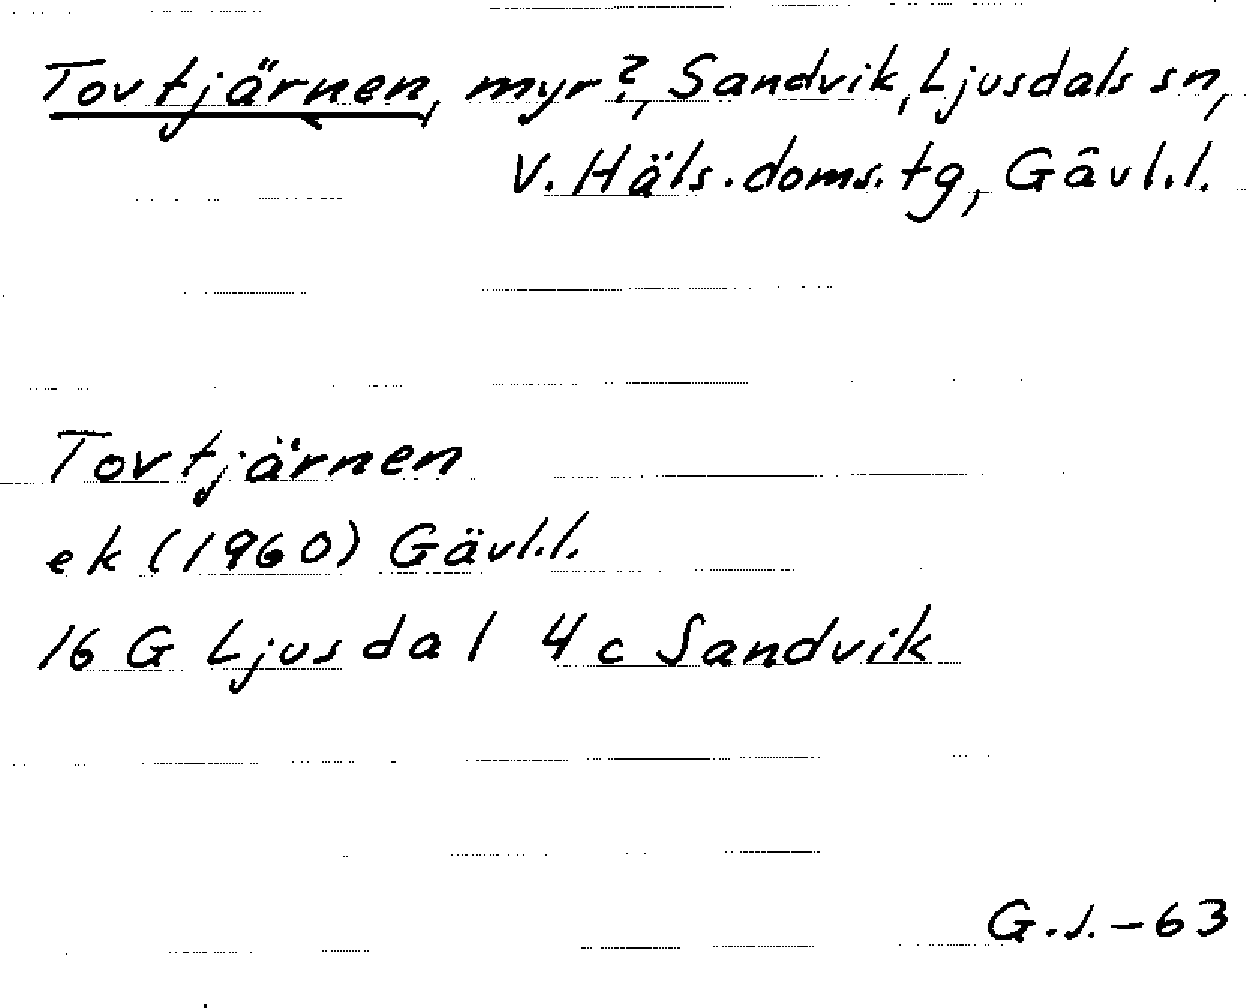 Tovtjärnen, myr?, Sandvik, Ljusdals sn,
V. Häls. doms. tg, Gävl.l.
Tovtjärnen
ek (1960) Gävl.l.
16 G Ljusdal 4c Sandvik
G.J.-63